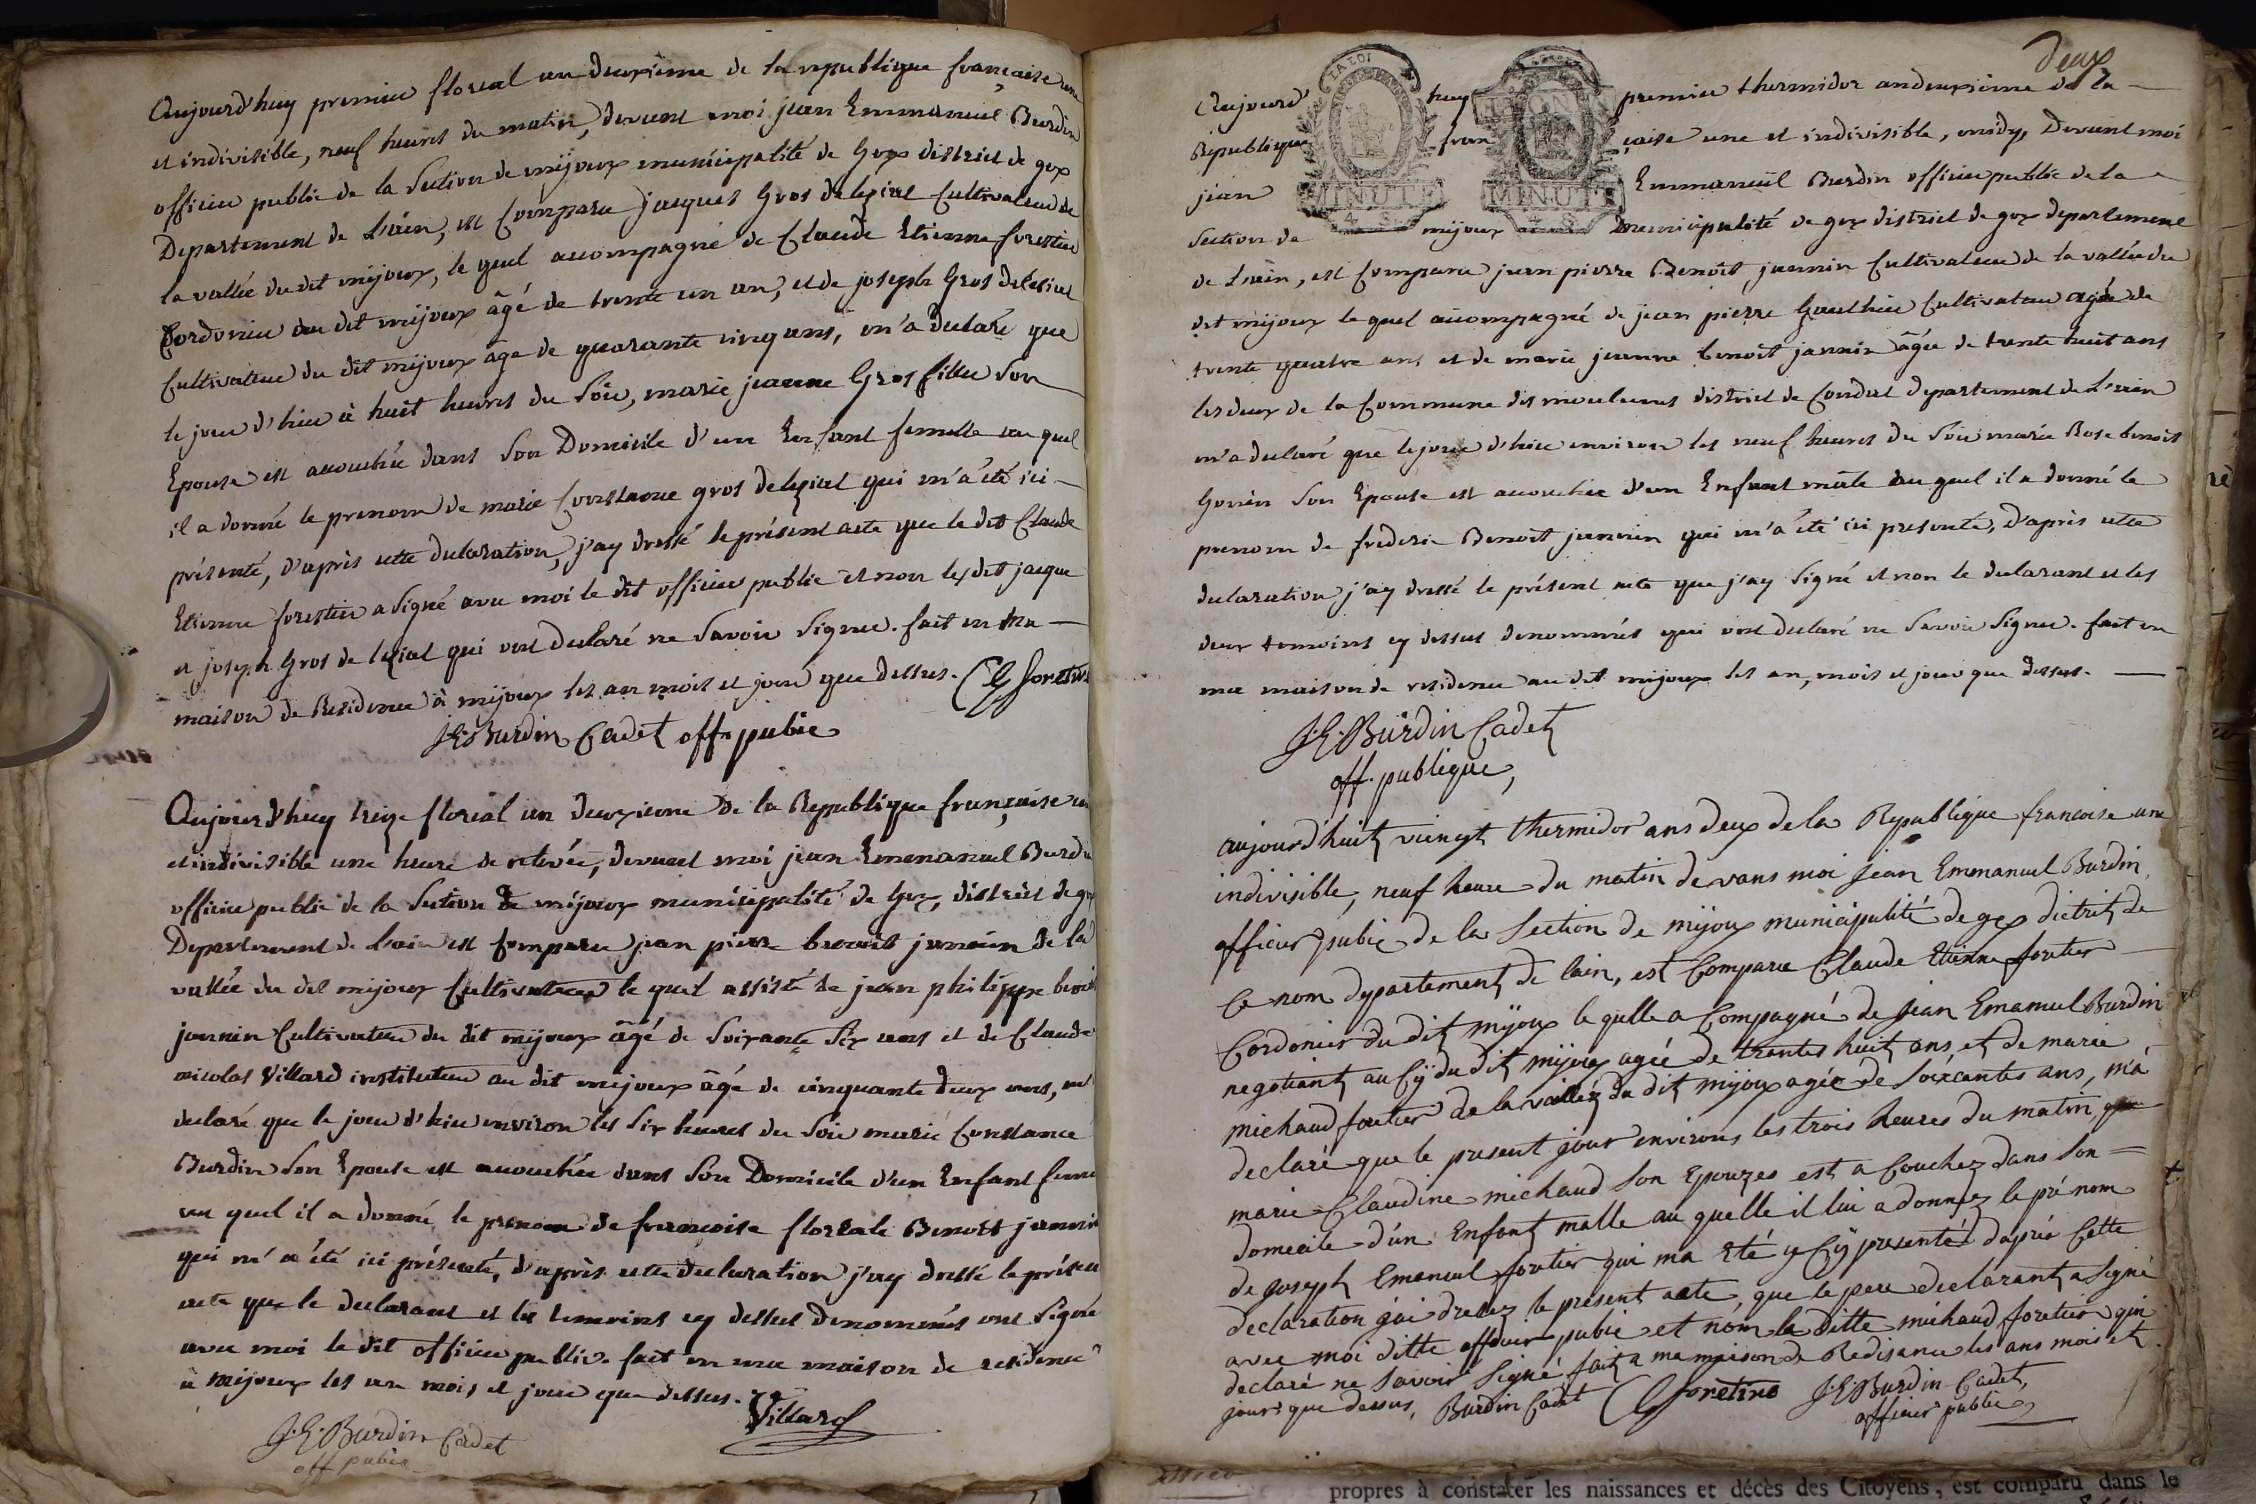 Aujourd'huy premier floreal an deuxieme de la republique française une
et indivisible, neuf heures du matin, devant moi jean Emmanuel Burdin
officier public de la Section de mijoux municipalité de Gex district de gex
Departement de L'ain, est Comparu jacques Gros delexial Cultivateur de
la vallée du dit mijoux, le quel accompagné de Claude Etienne forestier
Cordonier du dit mijoux âgé de trente un an, et de joseph Gros delexial
Cultivateur du dit mijoux âgé de quarante cinq ans, m'a declaré que
le jour d'hier à huit heures du Soir, marie jeanne Gros fillie Son
Epouse est accouchée dans Son Domicile d'un Enfant femelle au quel
il a donné le prenom de marie Constance gros delexial qui m'a été ici
présenté, d'après cette declaration, j'ay dressé le présent acte que le dit Claude
Etienne forestier a Signé avec moi le dit officier public et non les dit jacque
et joseph Gros de lexial qui ont Declaré ne Savoir Signer. fait en ma
maison de Residence à mijoux les an mois et jour que dessus. C E foretier
J. E. Burdin Cadet off. pubic
Aujourd'huy treize floreal an deuxieme de la Republique française une
et indivisible une heure de relevée, devant moi jean Emmanuel Burdin
officier public de la Section de mijoux municipalité de Gex, district de gex
Departement de L'ain est Comparu jean pierre benoit jannin de la
vallée du dit mijoux Cultivateur le quel assisté de jean philippe benoit
jannin Cultivateur du dit mijoux âgé de Soixante Six ans et de Claude
nicolas Villard instituteur au dit mijoux âgé de cinquante deux ans, m'a
declaré que le jour d'hier environ les Six heures du Soir marie Constance
Burdin Son Epouse est accouchée dans Son Domicile d'un Enfant feme
au quel il a donné le prenom de francoise floreale Benoit jannin
qui m'a été ici présenté, d'après cette declaration j'ay dressé le présent
acte que le declarant et les temoins cy dessus denomés ont Signé
avec moi le dit officier public. fait en ma maison de residence
à mijoux les an mois et jour que dessus.
Villard
J. E. Burdin Cadet
off pubic
Deux
Aujourd'huy premier thermidor an deuxieme de la
Republique française une et indivisible, midy, Devant moi
jean Emmanuël Burdin officier public de la
Section de mijoux municipalité de gex district de gex departement
de L'ain, est Comparu jean pierre Benoit jannin Cultivateur de la vallée du
dit mijoux le quel accompagné de jean pierre Gauthier Cultivateur agé de
trente quatre ans et de marie jeanne benoit jannin âgée de trente huit ans
les deux de la Commune des moulunes district de Condat departement de L'ain
m'a declaré que le jour d'hier environ les neuf heures du Soir marie Rose benoit
Gonin Son Epouse est accouchée d'un Enfant mâle au quel il a donné le
prenom de frederic Benoit jannin qui m'a été ici presenté, d'après cette
declaration j'ay dressé le présent acte que j'ay Signé et non le declarant et les
deux temoins cy dessus denommés qui ont declaré ne Savoir Signer. fait en
ma maison de residence au dit mijoux les an, mois et jour que dessus.
LA LOI
MINUTE
4. S.
MINUTE
4. S.
J. E. Burdin Cadet
off. publique,
aujourd'huit vuingt thermidor ans deux de la Republique francoise une
indivisible, neuf heure du matin devans moi Jean Emmanuel Burdin
officier pubic de la Section de mijoux municipalité de gex dictrit de
Ce nom departement de lain, est Compare Claude Etienne foretier
Cordonier du dit mijoux le quelle a Compagné de Jean Emanuel Burdin
negotiant au Cÿ du dit mijoux agée de trentes huit ans et de marie
michaud foretier de la vallée du dit mijoux agée de Soixcantes ans, m'a
declaré que le present jour environs les trois heures du matin que
marie Claudine michaud Son Epouzes est a Couchez dans Son
domecile d'un Enfant malle au quelle il lui a donnez le pré nom
de Joseph Emanuel foretier qui ma Eté y Cÿ presenté d'aprés Cette
declaration j'ai dressez le present acte, que le pere declarant a Signé
avec moi ditte officier pubic et nom la ditte michaud foretier qui
declaré ne Savoir Signé fait a ma maison de Redisance les ans mois et
jours que dessus, Burdin Cadet C E foretier J. E. Burdin Cadet,
officier public
propres à constater les naissances et décès des Citoyens, est comparu dans le